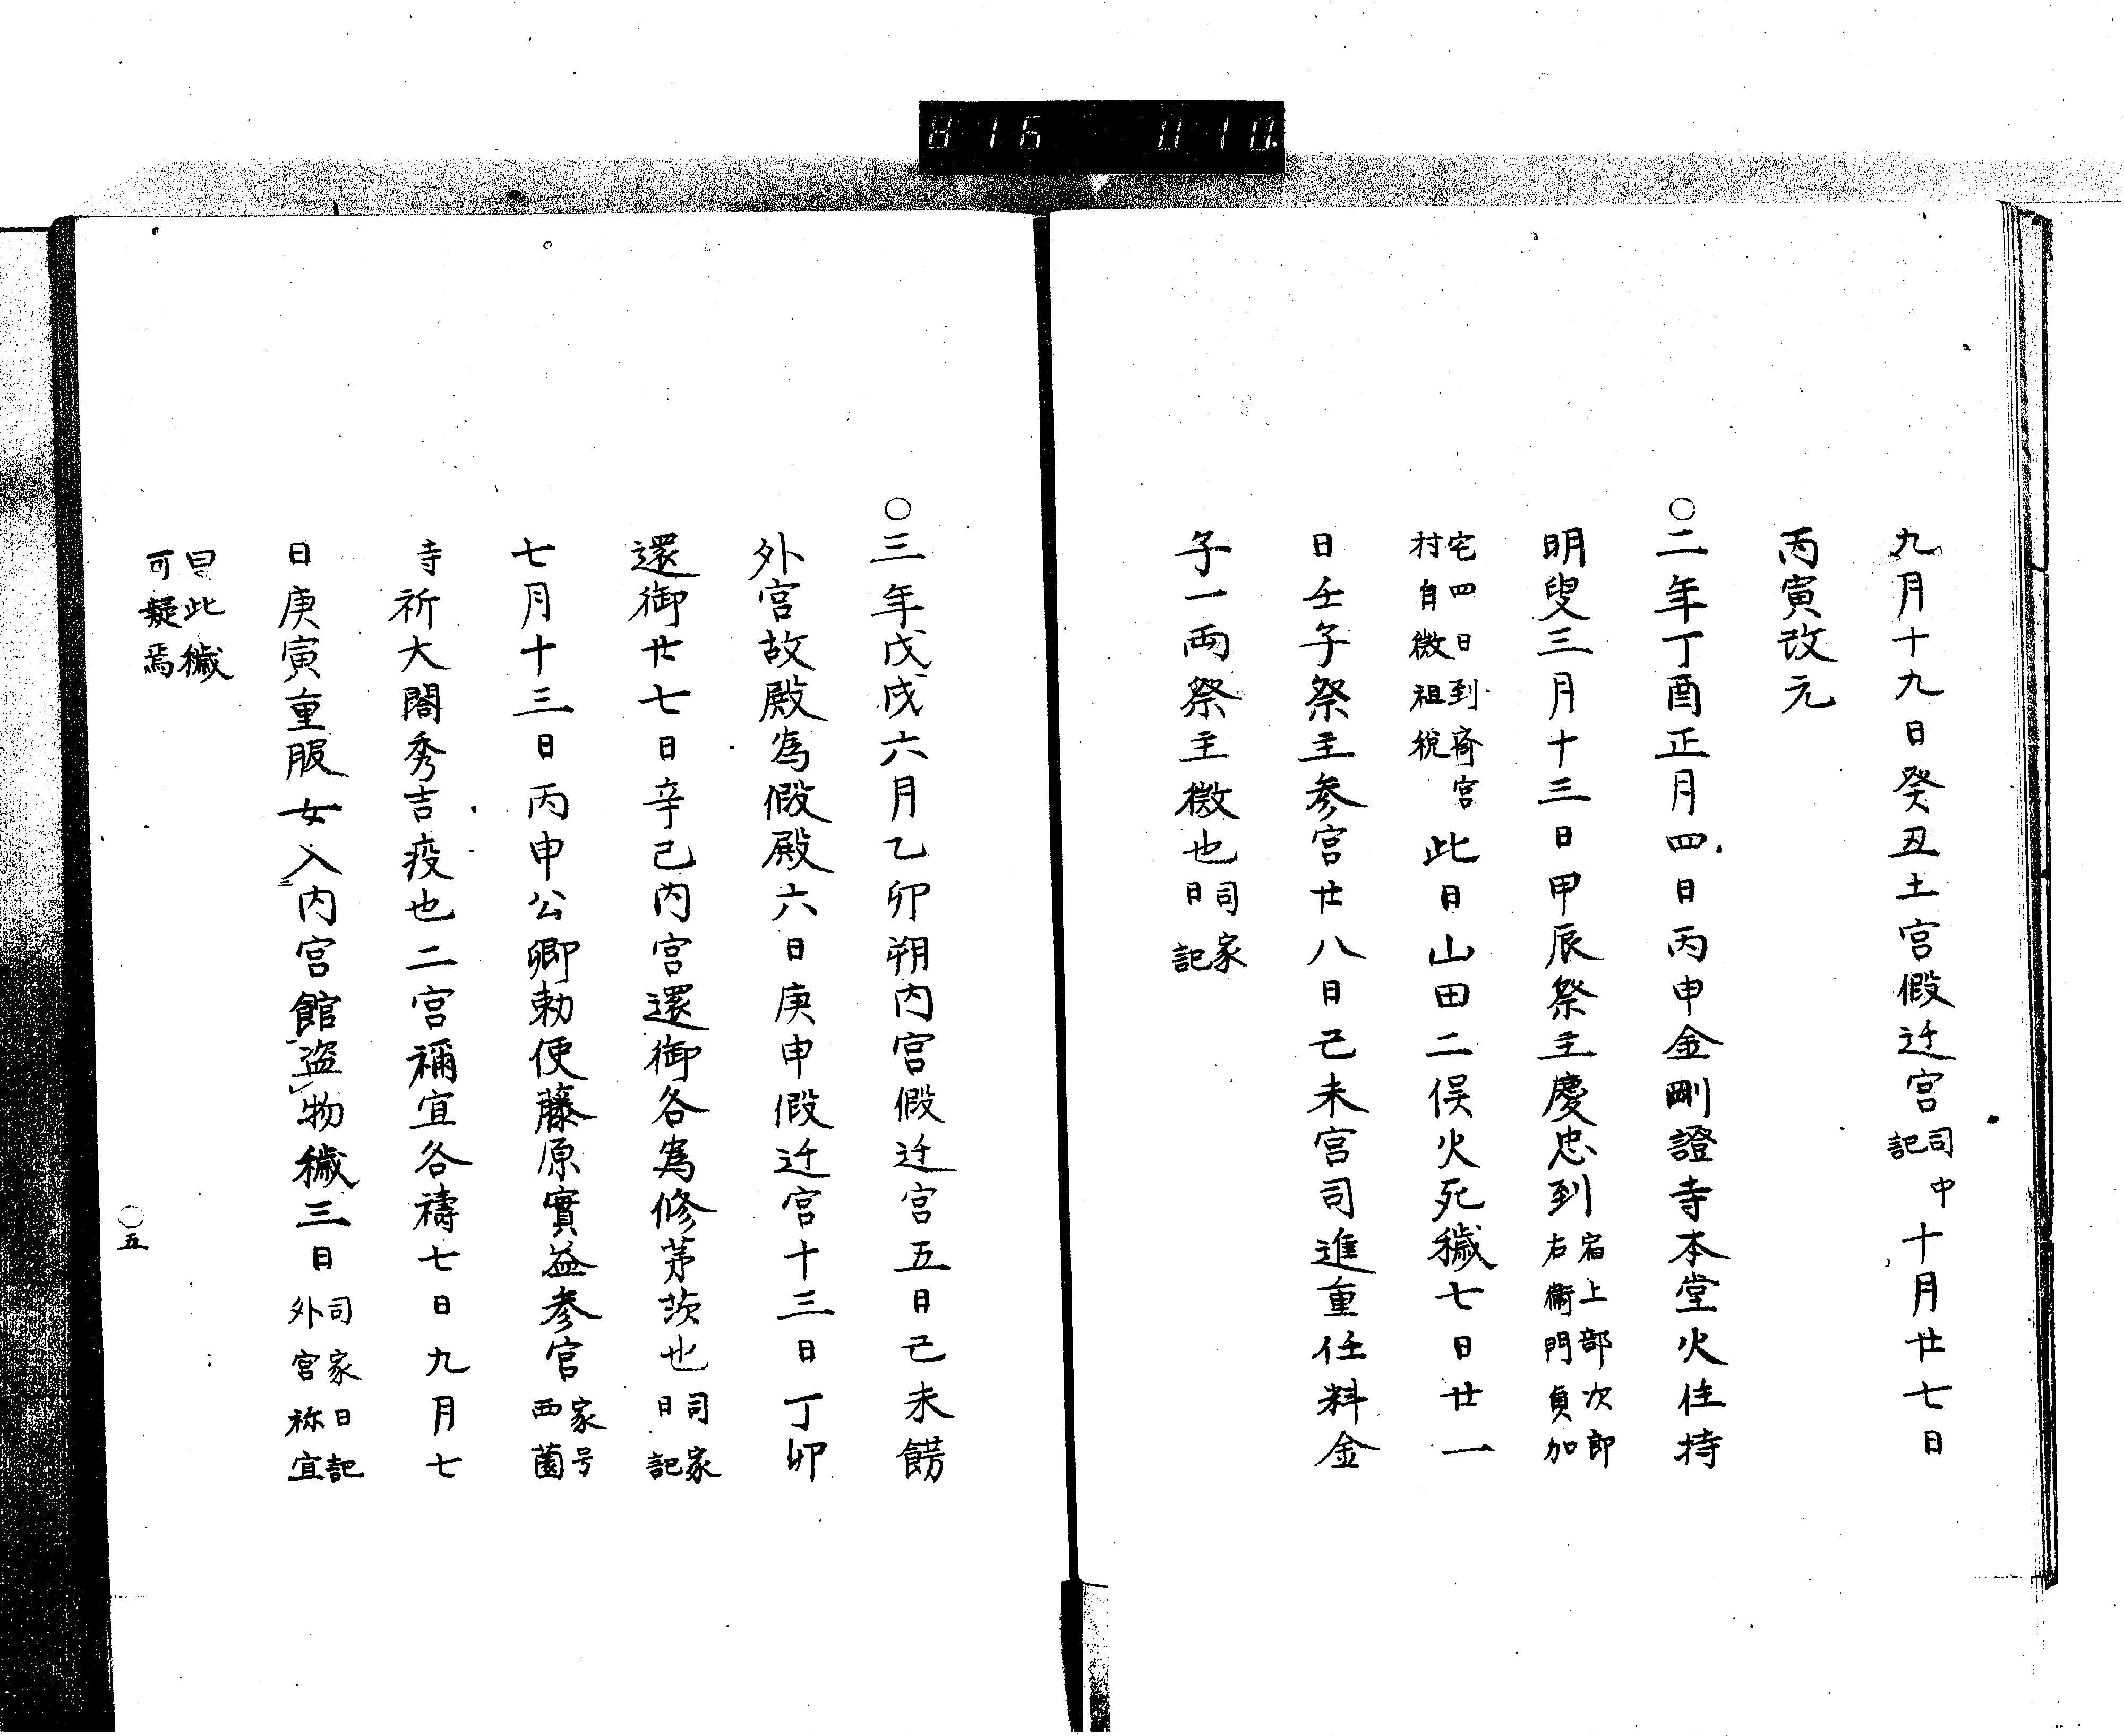 816 010
九月十九日癸丑土宮假迁宮司中記十月廿七日
丙寅改元
○二年丁酉正月四日丙申金剛證寺本堂火住持
明叟三月十三日甲辰祭主慶忠到宿上部次郎右衛門貞加
宅四日到斉宮村自徴祖税此日山田二俣火死穢七日廿一
日壬子祭主参宮廿八日己未宮司進重任料金
子一両祭主徴也司家日記
○三年戊戌六月乙卯朔内宮假迁宮五日己未餝
外宮故殿為假殿六日庚申假迁宮十三日丁卯
還御廿七日辛巳内宮還御各為修茅茨也司家日記
七月十三日丙申公卿勅使藤原實益参宮家号西園
寺祈大閤秀吉疫也二宮禰宜各禱七日九月七
日庚寅重服女入内宮館盗物穢三日司家日記外宮祢宜
曰此穢可疑焉
○五